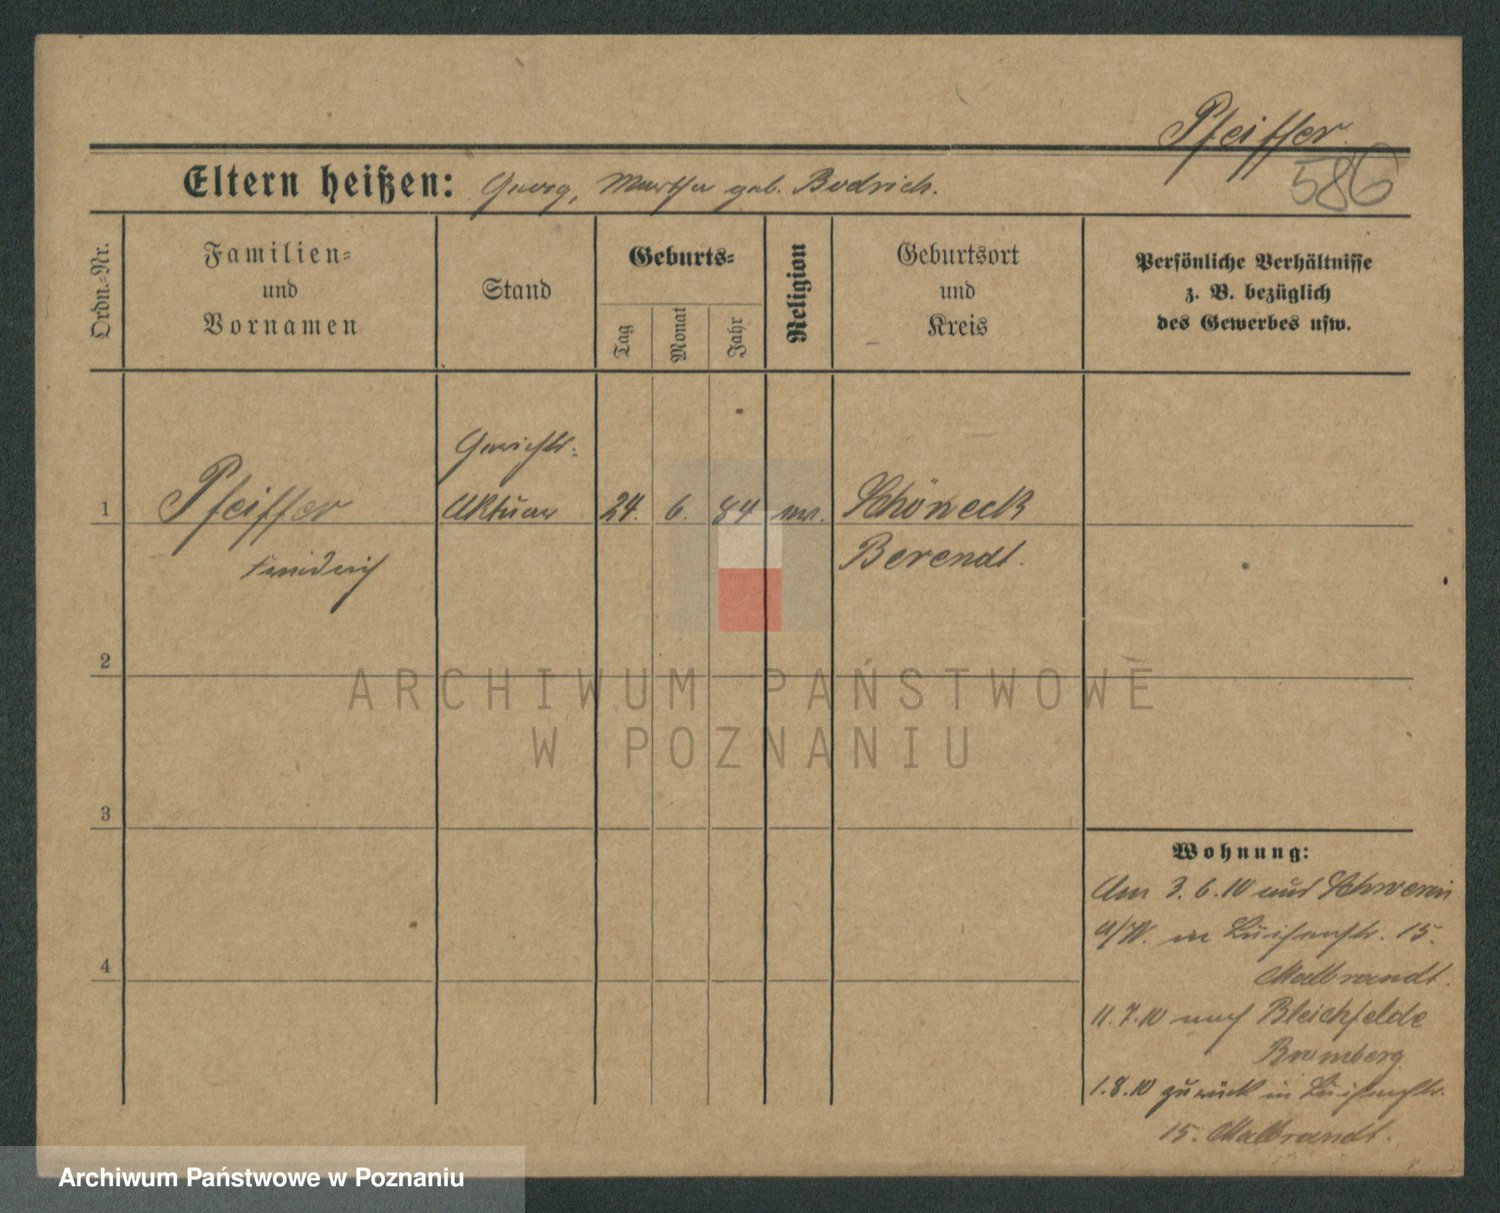 Pfeiffer.
586
Eltern heißen: Georg, Martha geb. Bodrich.
Ordn.-Nr.
Familien-
und
Vornamen
Stand
Geburts-
Tag
Monat
Jahr
Religion
Geburtsort
und
Kreis
Persönliche Verhältnisse
z. B. bezüglich
des Gewerbes usw.
Gerichts-
1 Pfeiffer Aktuar 24. 6. 84 ev. Schöneck
Friedrich Berendt.
2
ARCHIWUM PAŃSTWOWE
W POZNANIU
3
Wohnung:
Am 3. 6. 10 aus Schwerin
a/W. in Luisenstr. 15.
4
Malbrandt.
11. 7. 10 nach Bleichfelde
Bromberg
1. 8. 10 zurück in Luisenstr.
15. Malbrandt.
Archiwum Państwowe w Poznaniu